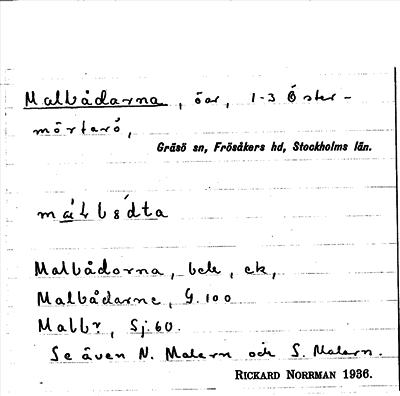 Malbådarna, öar, 1-3 Öster-
mörtarö,
Gräsö sn, Frösåkers hd, Stockholms län.
Malbådorna, bek, ek,
Malbådarne, G. 100
Malbr, Sj. 60.
Se även N. Malarn och S. Malarn.
RICKARD NORRMAN 1936.